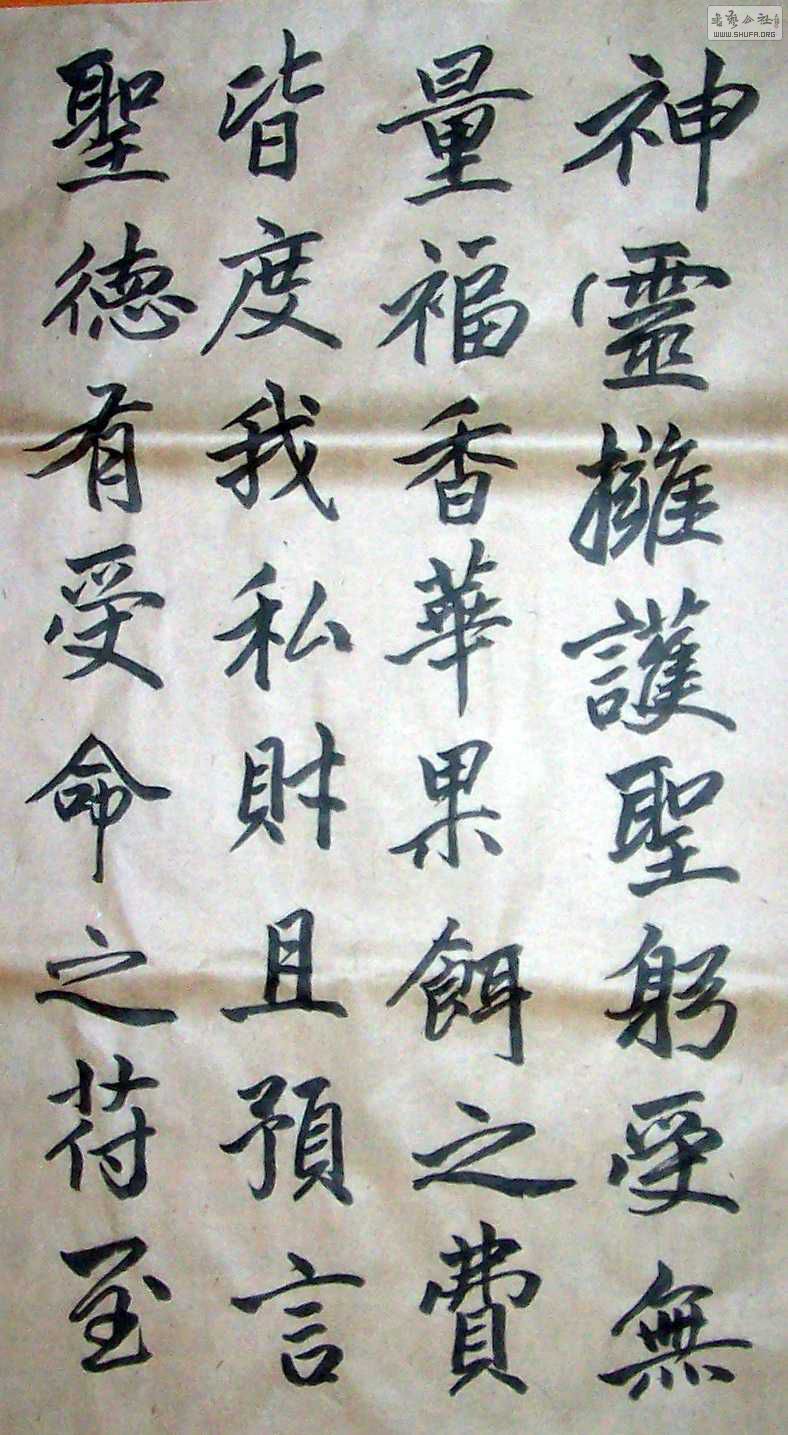 神靈擁護聖躬受無
量福香華果餌之費
皆度我私財且預言
聖德有受命之苻至
WWW.SHUFA.ORG